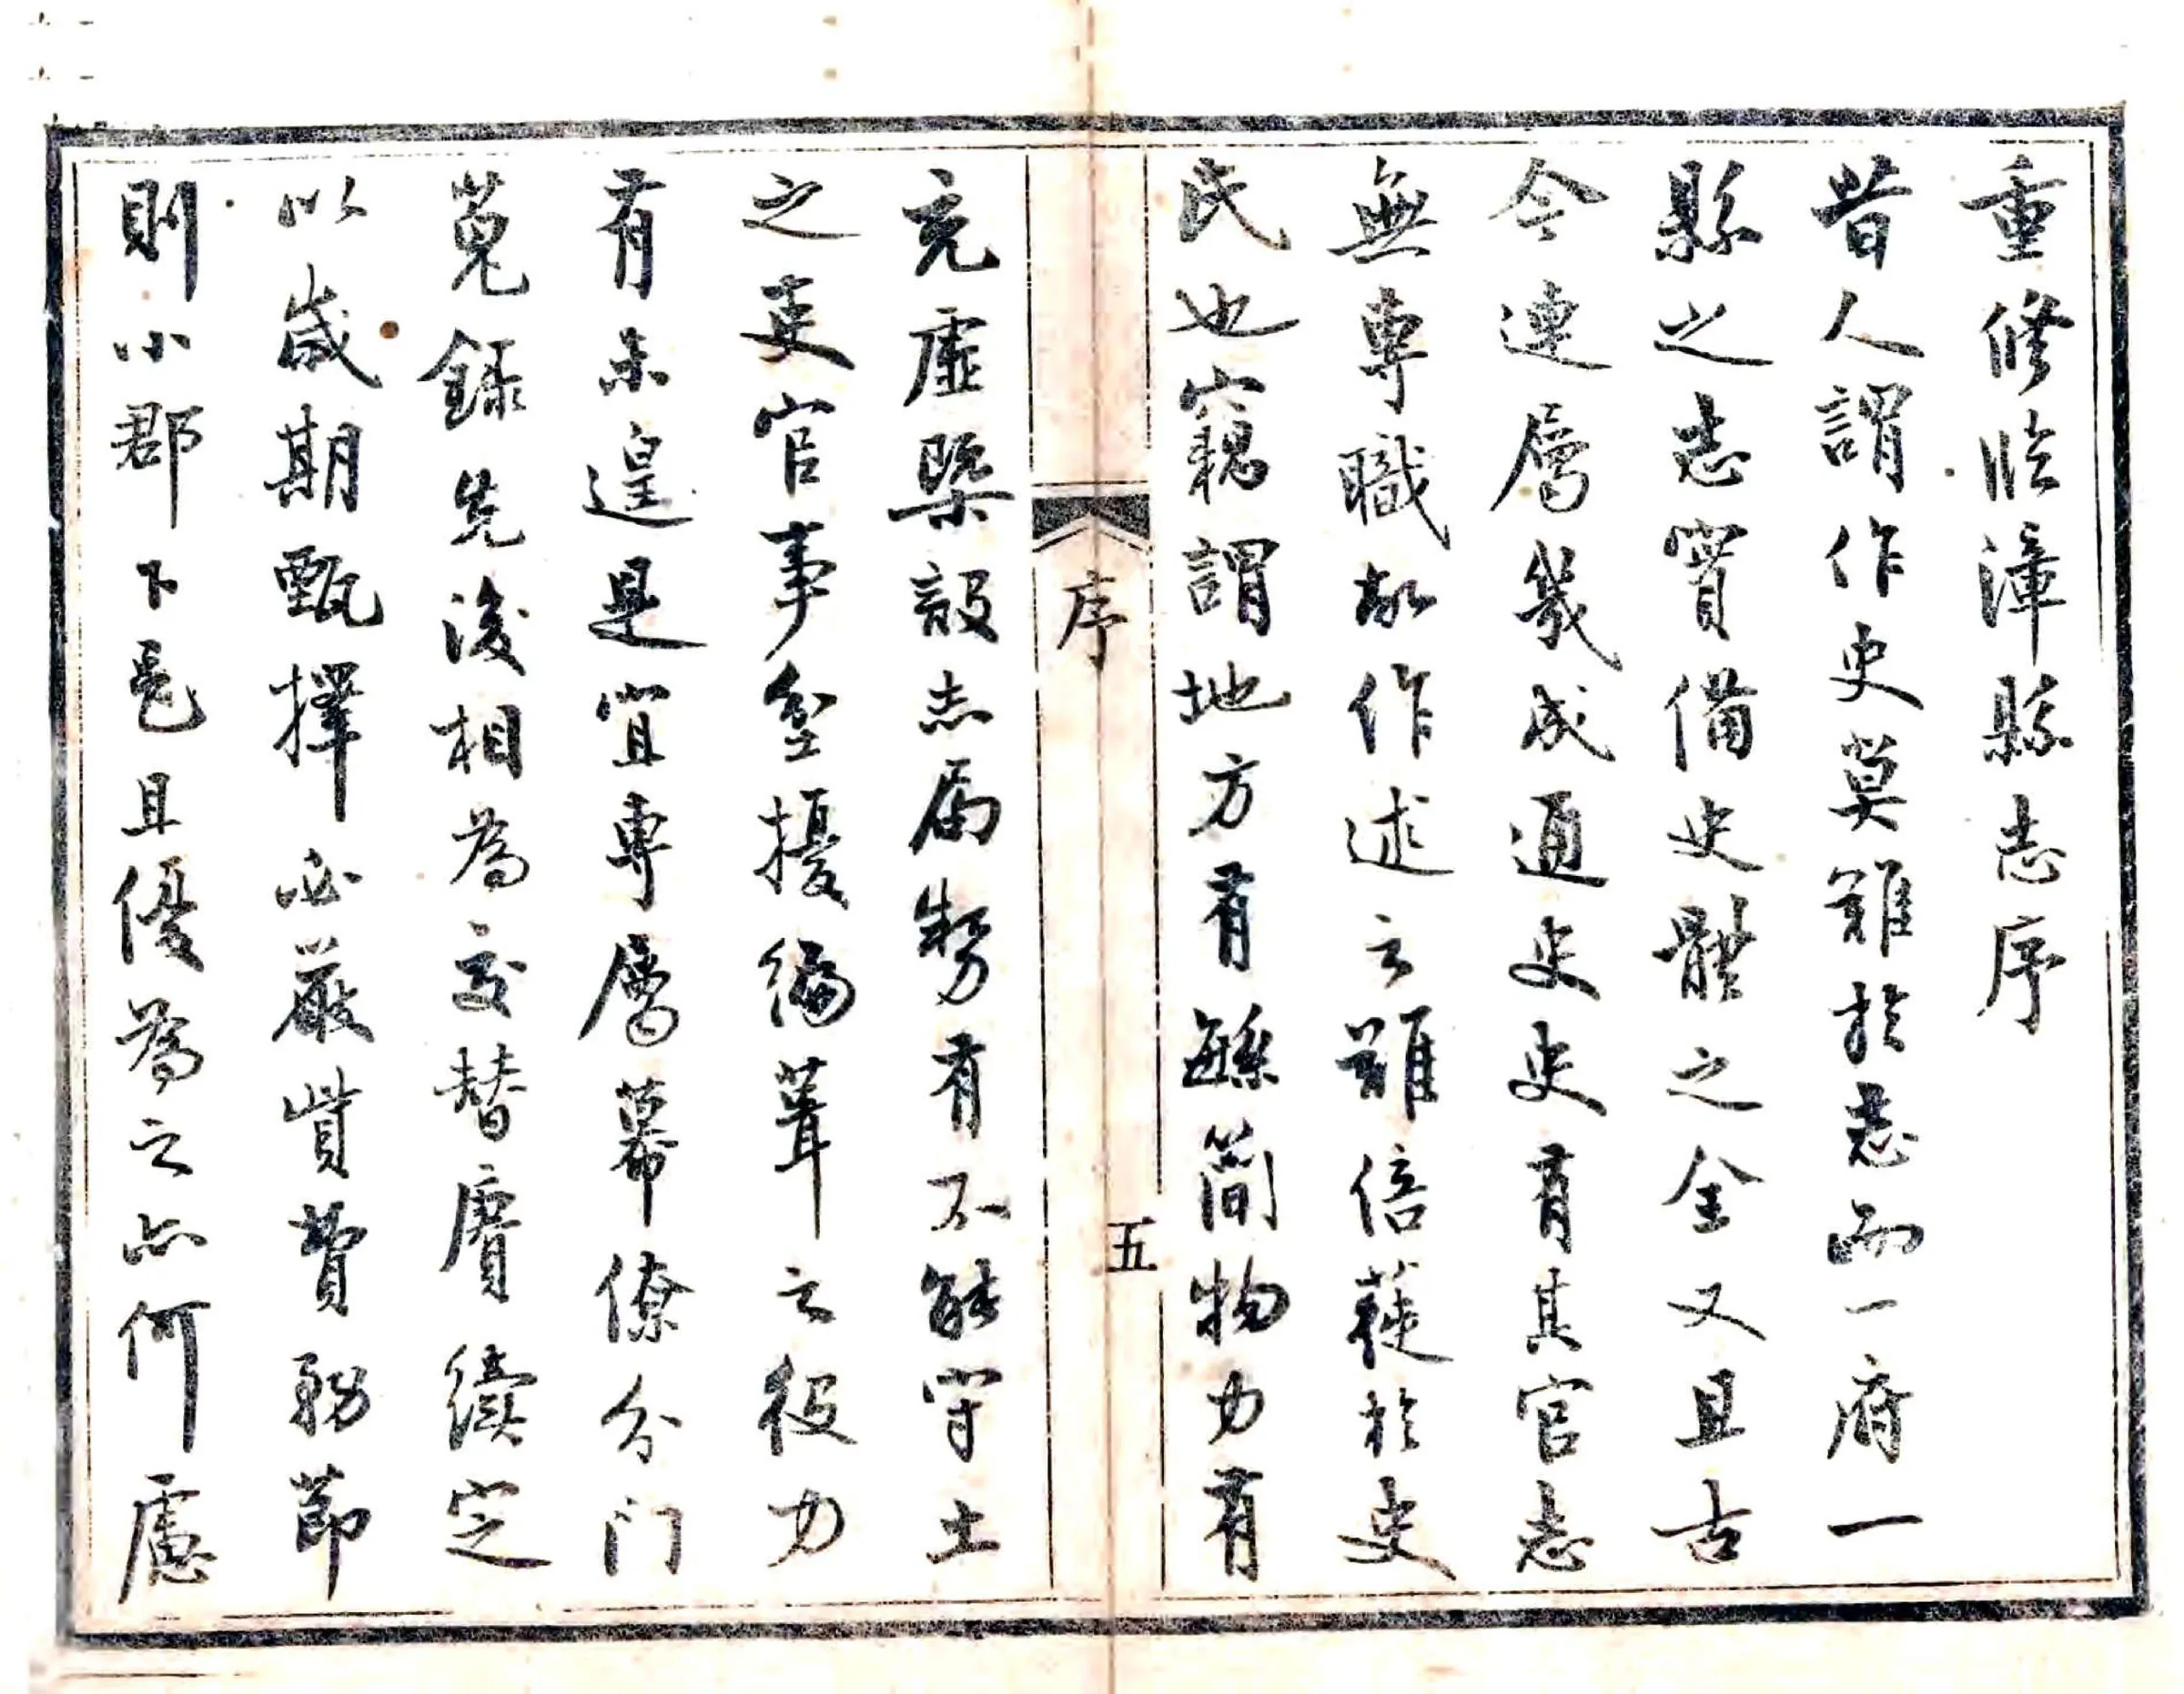 重修臨漳縣志序
昔人謂作史莫難於志而一府一
縣之志實備史體之全又且古
今連屬裒成通史史有其官志
無專職故作述之難倍蓰於史
民也竊謂地方有繇簡物力有
序
五
充虛槩設志局勢有不能守土
之吏官事坌擾編葺之役力
有未遑是宜專屬幕僚分門
蒐錄先後相為交替賡續定
以歲期甄擇必嚴貲費務節
則小郡下邑且優為之亦何慮